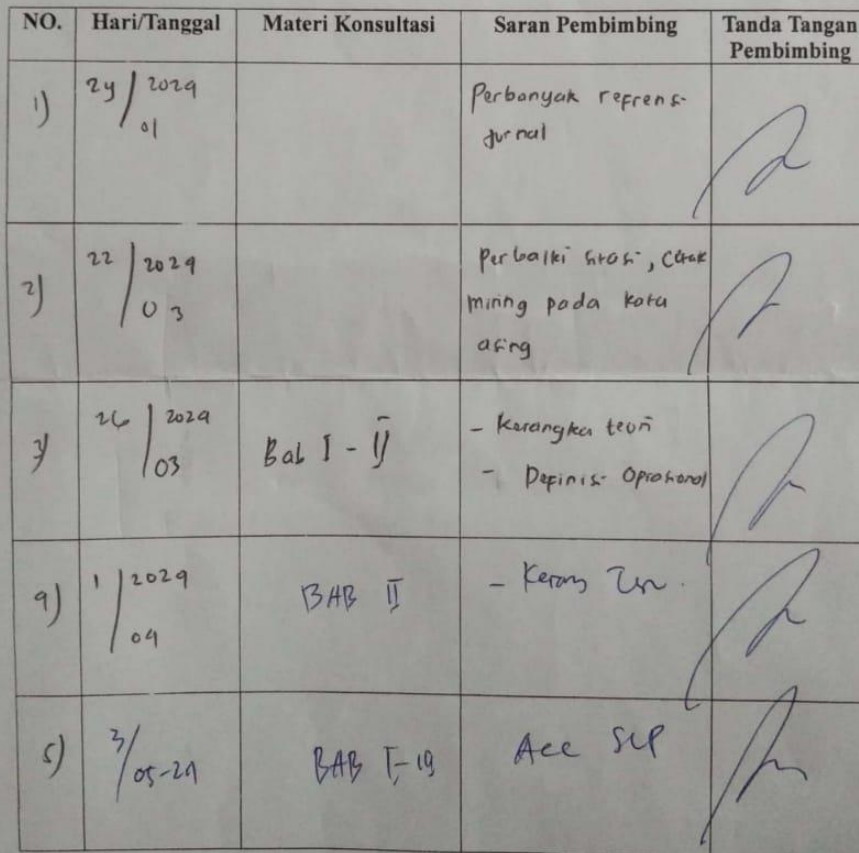 NO. Hari/Tanggal Materi Konsultasi Saran Pembimbing Tanda Tangan Pembimbing
1) 24/01 2024 Perbanyak refrensi
jurnal
2) 22/03 2024 Perbaiki sitasi, cetak
miring pada kata
asing
3) 26/03 2024 Bab I - II - Kerangka teori
- Definisi Oprasional
4) 1/04 2024 BAB II - Kerang
5) 3/05-24 BAB I- Acc